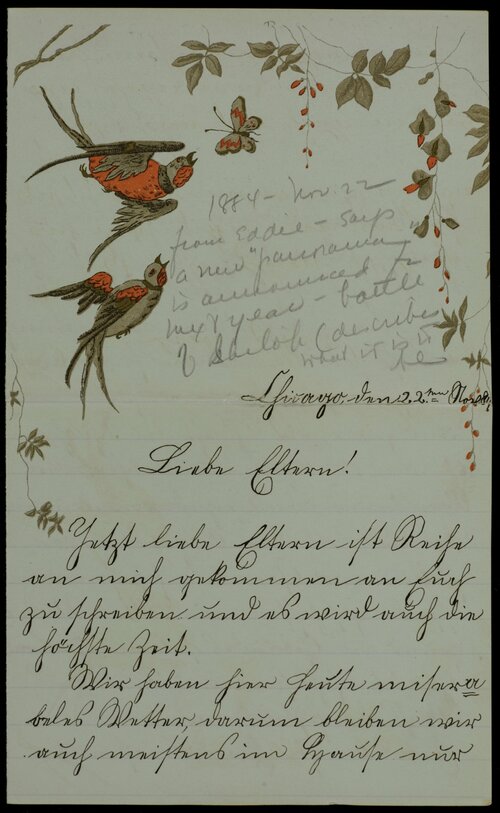 1884 - Nov. 22
from Eddie - says
a new "panorama"
is announced for
next year - battle
of (describes
what it is to
be
Chicago, den 22ten Nov. 84
Liebe Eltern!
Jetzt liebe Eltern ist Reihe
an mich gekommen an Euch
zu schreiben und es wird auch die
höchste Zeit.
Wir haben hier heute misera
beles Wetter, darum bleiben wir
auch meistens im Hause nur